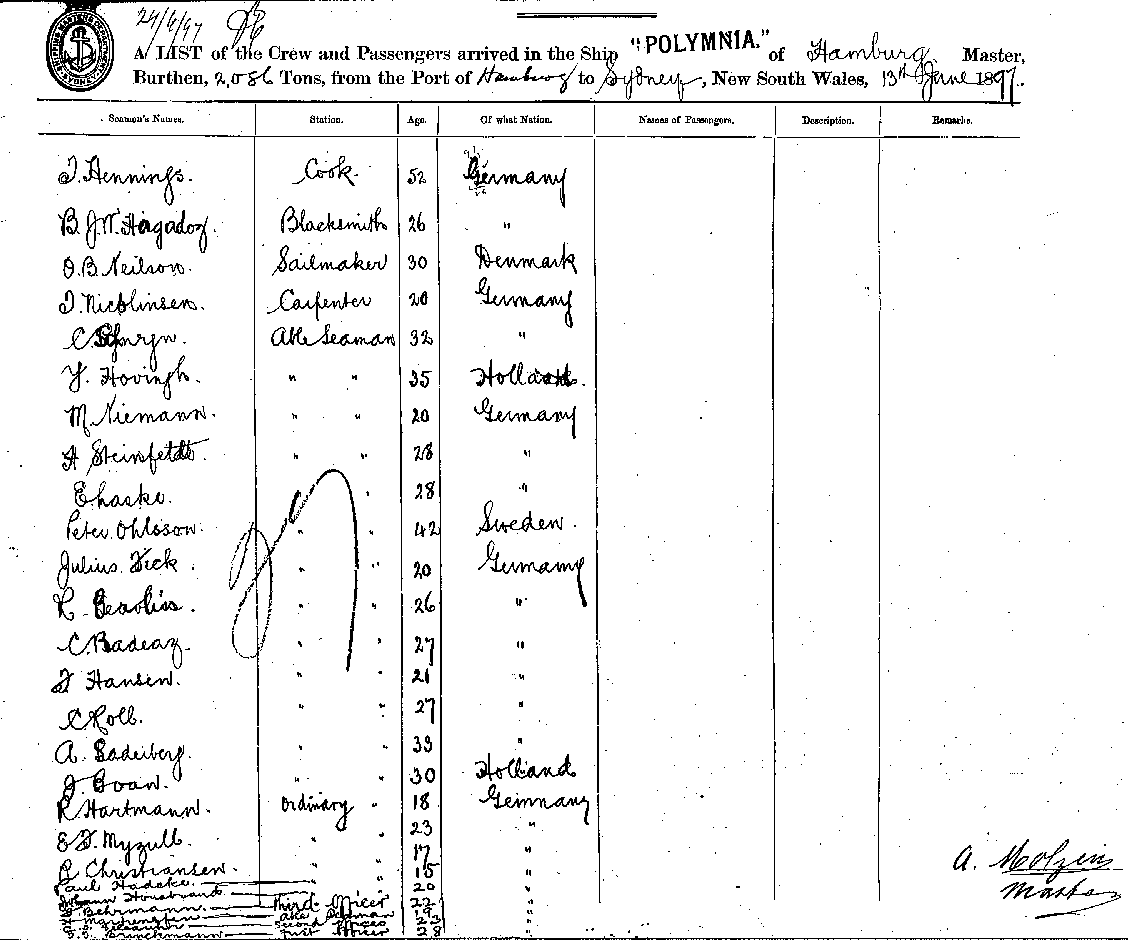 24/6/97
A LIST of the Crew and Passengers arrived in the Ship "POLYMNIA." of Hamburg Master,
Burthen, 2,086 Tons, from the Port of Hamburg to Sydney, New South Wales, 13th June 1897.
Seamen's Names. Station. Age. Of what Nation. Names of Passengers. Description. Remarks.
J. Hennings. Cook. 52 Germany
B. J. W. Blacksmith 26 "
O. B. Neilson. Sailmaker 30 Denmark
Carpenter 20 Germany
Able Seaman 32 "
Y. Hovingh. " " 35 Holland.
M. Niemann. " " 20 Germany
H Steinfeldt. " " 28 "
" 28 "
Peter Ohlsson. " 42 Sweden.
Julius Fick. " " 20 Germany
R. " " 26 "
C. Badeaz. " " 27 "
F Hansen. " " 21 "
C Roll. " " 27 "
A. " " 33 "
J. Bvan. " " 30 Holland
R Hartmann. Ordinary " 18 Germany
" " 23 "
R Christiansen. " " 17 "
Paul Hadcke. " " 15 "
Johann 20
Behrmann. Third Officer 22 "
Able Seaman 19
Second Officer 23
Brinckmann. First Officer 28 "
A. Molzin
Master